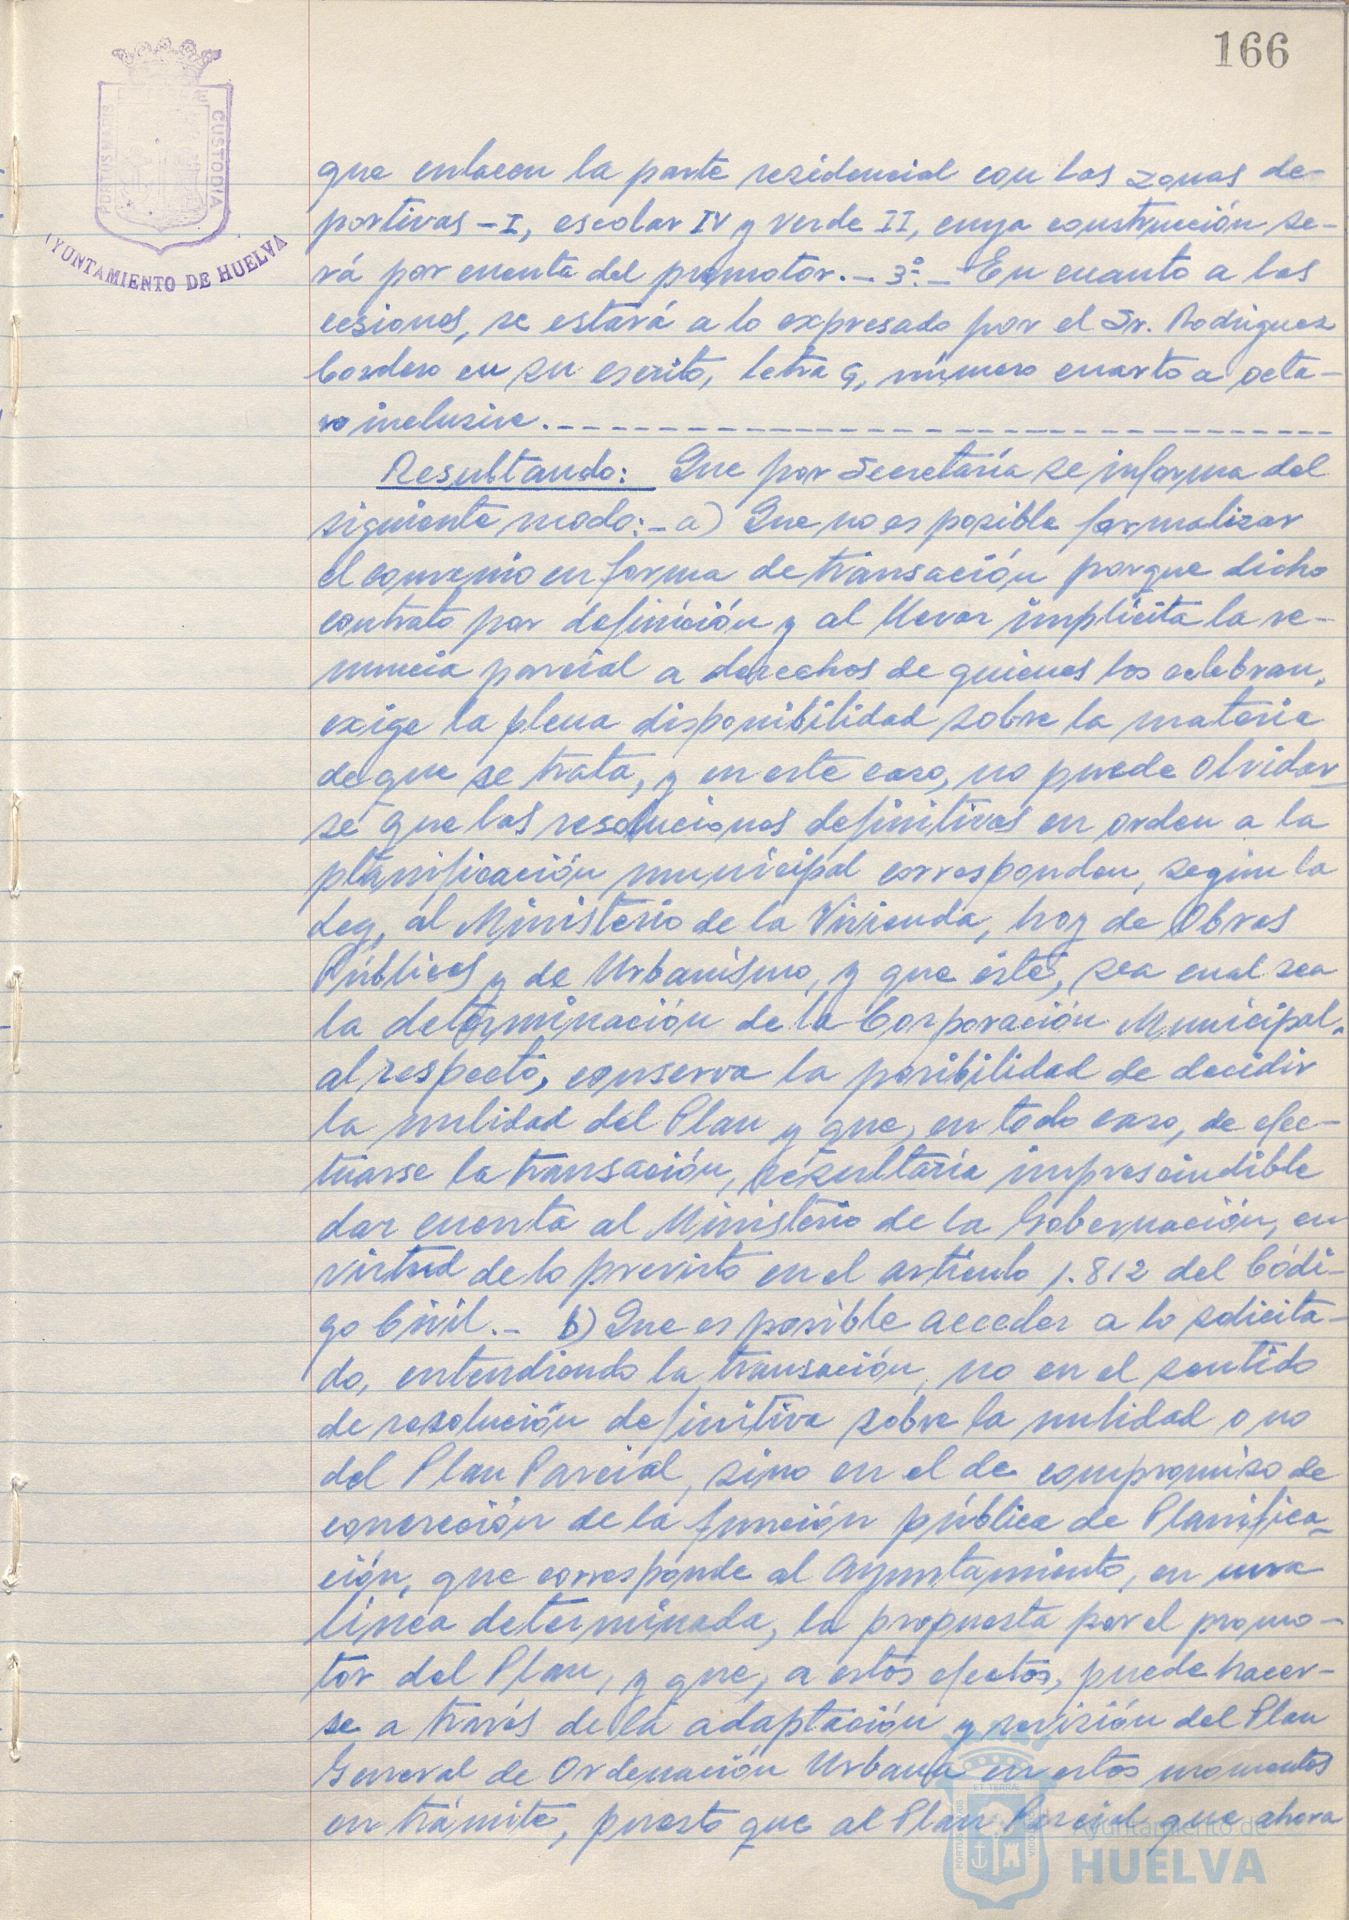 166
PORTUS MARIS CUSTODIA
AYUNTAMIENTO DE HUELVA
que enlacen la parte residencial con las zonas de-
portivas - I, escolar IV y verde II, cuya construcción se-
rá por cuenta del promotor. - 3º.- En cuanto a las
cesiones, se estará a lo expresado por el Sr. Rodríguez
Cordero en su escrito, letra G, número cuarto a octa-
vo inclusive. -
Resultando: Que por Secretaría se informa del
siguiente modo: - a) Que no es posible formalizar
el convenio en forma de transación porque dicho
contrato por definición y al llevar implícita la re-
nuncia parcial a derechos de quienes los celebran,
exige la plena disponibilidad sobre la materia
de que se trata, y en este caso, no puede olvidar
se que las resoluciones definitivas en orden a la
planificación municipal corresponden, según la
Ley, al Ministerio de la Vivienda, hoy de Obras
Públicas y de Urbanismo, y que éste, sea cual sea
la determinación de la Corporación Municipal
al respecto, conserva la posibilidad de decidir
la nulidad del Plan y que, en todo caso, de efec-
tuarse la transación, resultaría imprescindible
dar cuenta al Ministerio de la Gobernación, en
virtud de lo previsto en el artículo 1.812 del Códi-
go Civil. - b) Que es posible acceder a lo solicita-
do, entendiendo la transación, no en el sentido
de resolución definitiva sobre la nulidad o no
del Plan Parcial, sino en el de compromiso de
concreción de la función pública de Planifica-
ción, que corresponde al Ayuntamiento, en una
línea determinada, la propuesta por el promo-
tor del Plan, y que, a estos efectos, puede hacer-
se a través de la adaptación y revisión del Plan
General de Ordenación Urbana en estos momentos
en trámite, puesto que al Plan Parcial que ahora
Ayuntamiento de
HUELVA